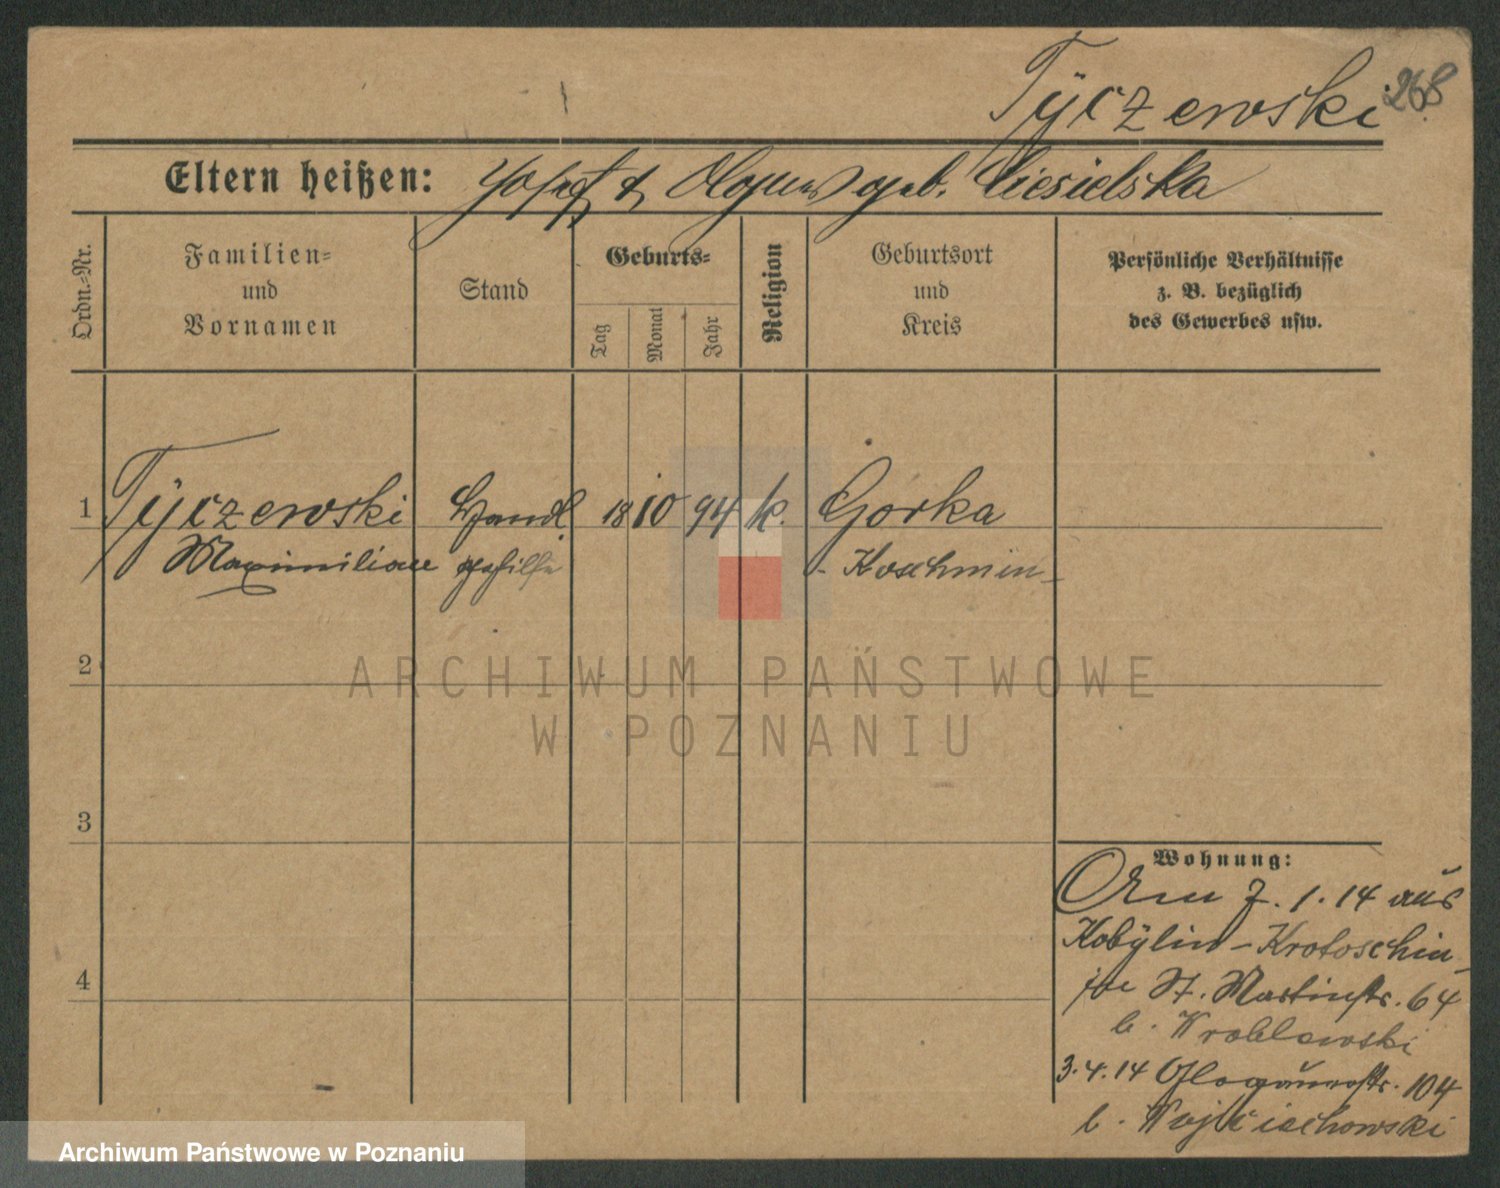 Tÿczewski 268
Eltern heißen: Josef & Agnes geb. Ciesielska
Ordn.-Nr.
Familien-
und
Vornamen
Stand
Geburts-
Tag
Monat
Jahr
Religion
Geburtsort
und
Kreis
Persönliche Verhältnisse
z. B. bezüglich
des Gewerbes usw.
1 Tÿczewski Handl. 18 10 94 k. Gorka
Maximilian gehilfe - Koschmin -
2
ARCHIWUM PAŃSTWOWE
W POZNANIU
3
Wohnung:
7. 1. 14 aus
Kobÿlin - Krotoschin -
St. Martinstr. 64
b. Wroblewski
4
3.4.14 Glogauerstr. 104
b. Wojciechowski
Archiwum Państwowe w Poznaniu